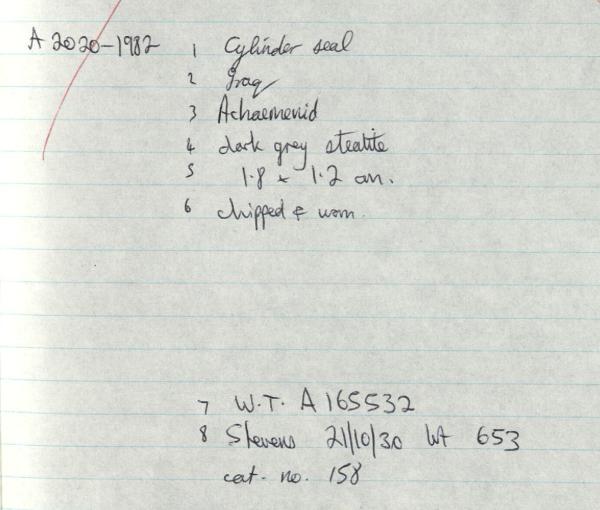 A 2020-1982 1 Cylinder seal
2 Iraq
3 Achaemenid
4 dark grey steatite
5 1.8 x 1.2 cm.
6 chipped & worn.
7 W.T. A 165532
8 Stevens 21/10/30 lot 653
cat. no. 158